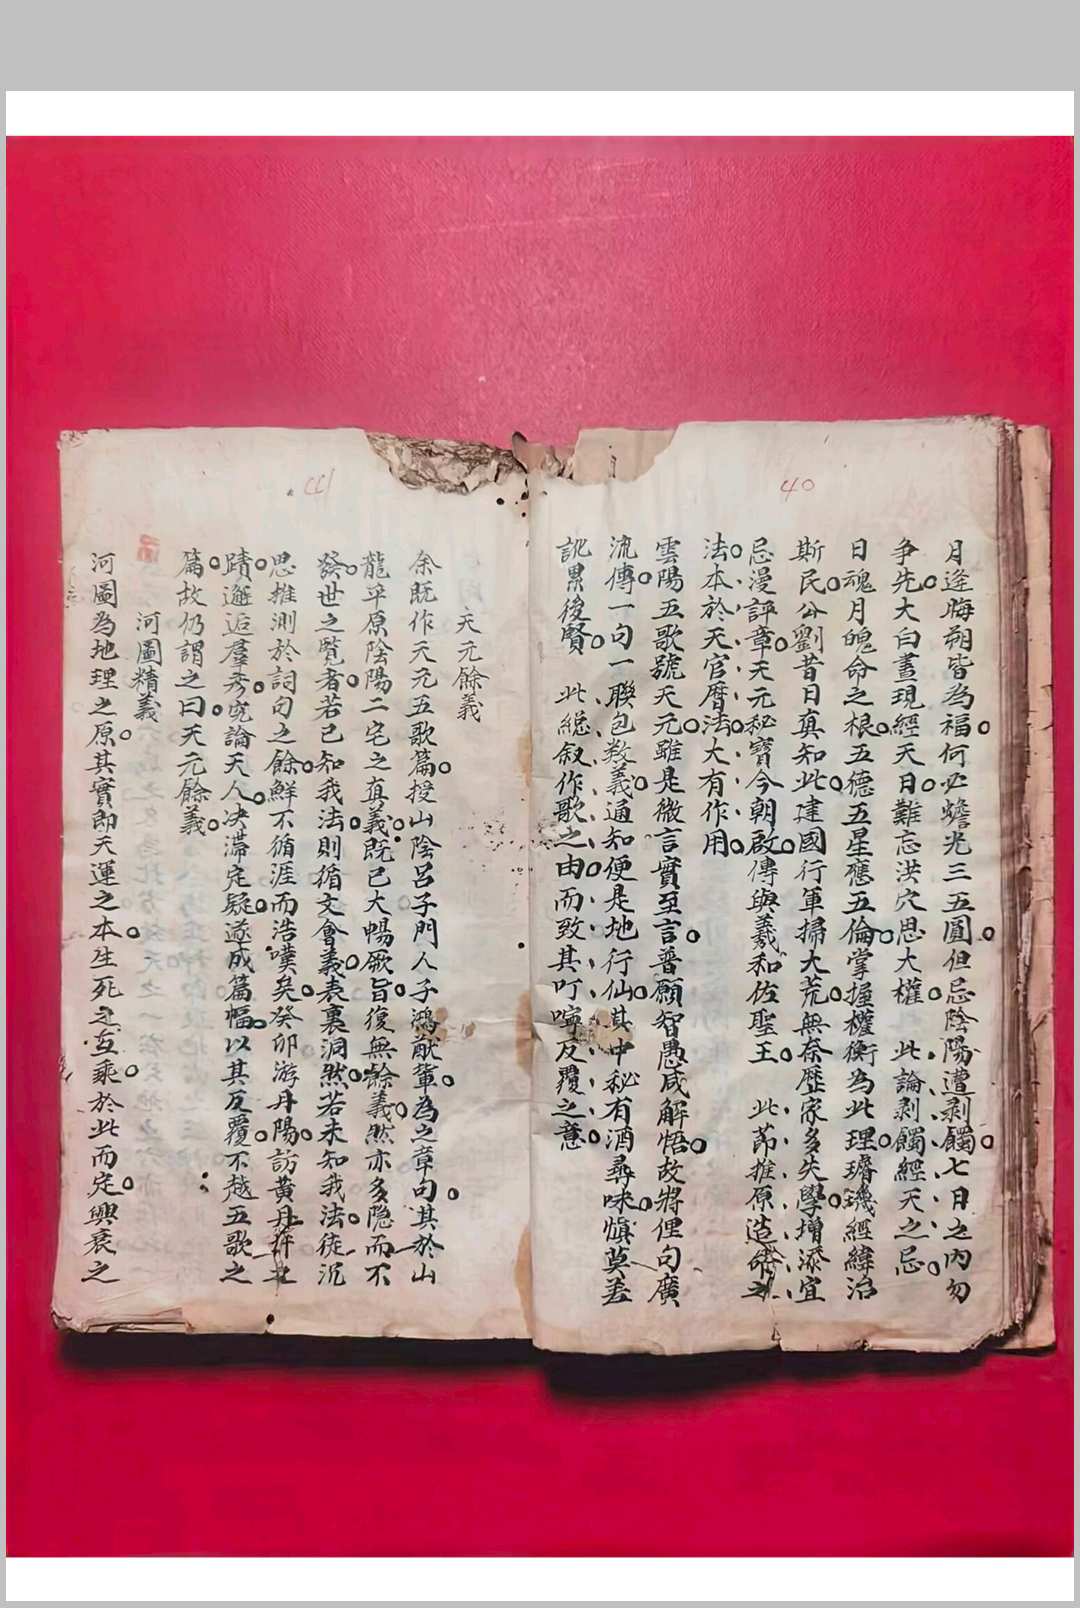 40
月逢晦朔皆為福何必蟾光三五圓但忌陰陽遭剥蠲七日之内勿
争先大白晝現經天日難忘洪穴思大權 此論剥蠲經天之忌
日魂月魄命之根五德五星應五倫掌握權衡為此理璿璣經緯治
斯民公劉昔日真知此建國行軍掃大荒無奈歷家多失學增添宜
忌漫評章天元秘寶今朝啟傳與羲和佐聖王 此節推原造命之
法本於天官曆法大有作用
雲陽五歌號天元雖是微言實至言普願智愚咸解悟故將俚句廣
流傳一句一聯包数義通知便是地行仙其中秘有酒尋味慎莫差
訛累後賢 此總叙作歌之由而致其叮嚀反覆之意
41
天元餘義
余既作天元五歌篇授山陰呂子門人子鴻猷輩為之章句其於山
龍平原陰陽二宅之真義既已大暢厥旨復無餘義然亦多隐而不
發世之覽者若已知我法則循文會義表裏洞然若未知我法徒沉
思推測於詞句之餘鮮不循涯而浩嘆矣癸卯游丹陽訪黄丹許之
蹟邂逅羣秀究論天人决滞定疑遂成篇幅以其反覆不越五歌之
篇故仍謂之曰天元餘義
河圖精義
河圖為地理之原其實即天運之本生死之互乘於此而定興衰之